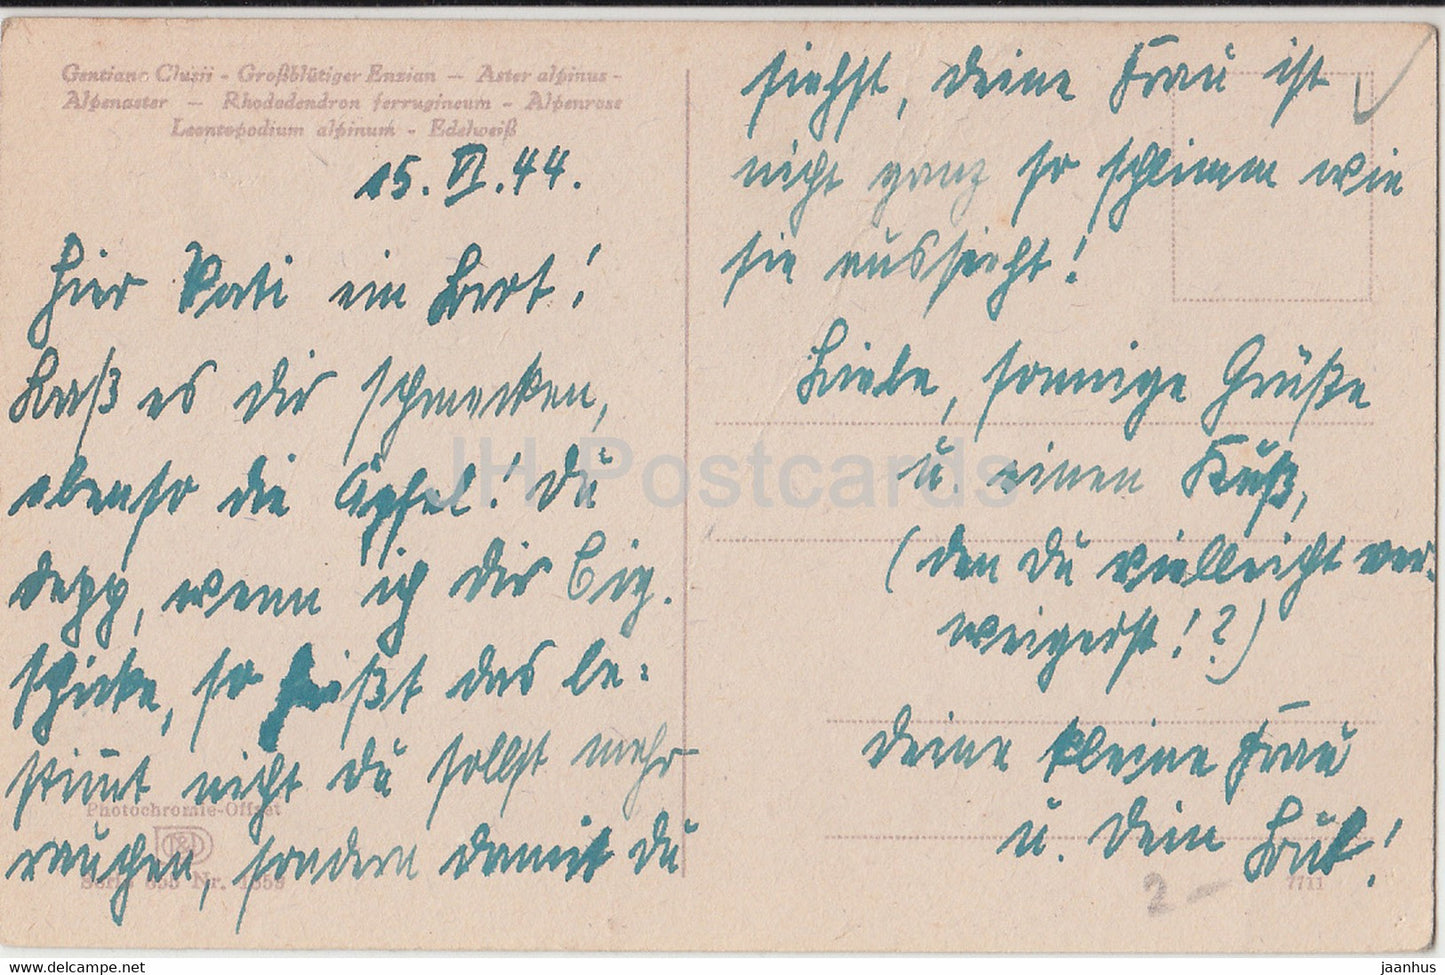 Gentiana Clusii - Großblütiger Enzian — Aster alpinus -
Alpenaster — Rhododendron ferrugineum - Alpenrose
Leontopodium alpinum - Edelweiß
15. VI. 44.
Hier Vati ein Brot!
Laß es dir schmecken,
ebenso die Äpfel! Du
Depp, wenn ich dir Cig.
schicke, so heißt das be-
stimmt nicht du sollst mehr
rauchen, sondern damit du
siehst, deine Frau ist
nicht ganz so schlimm wie
sie aussieht!
Liebe, sonnige Grüße
u. einen Kuß,
(den du vielleicht ver-
weigerst!?)
Deine kleine Frau
u. dein
Photochromie-Offset
Serie 653 Nr. 1359
7711
2 -
JH Postcards
jaanhus